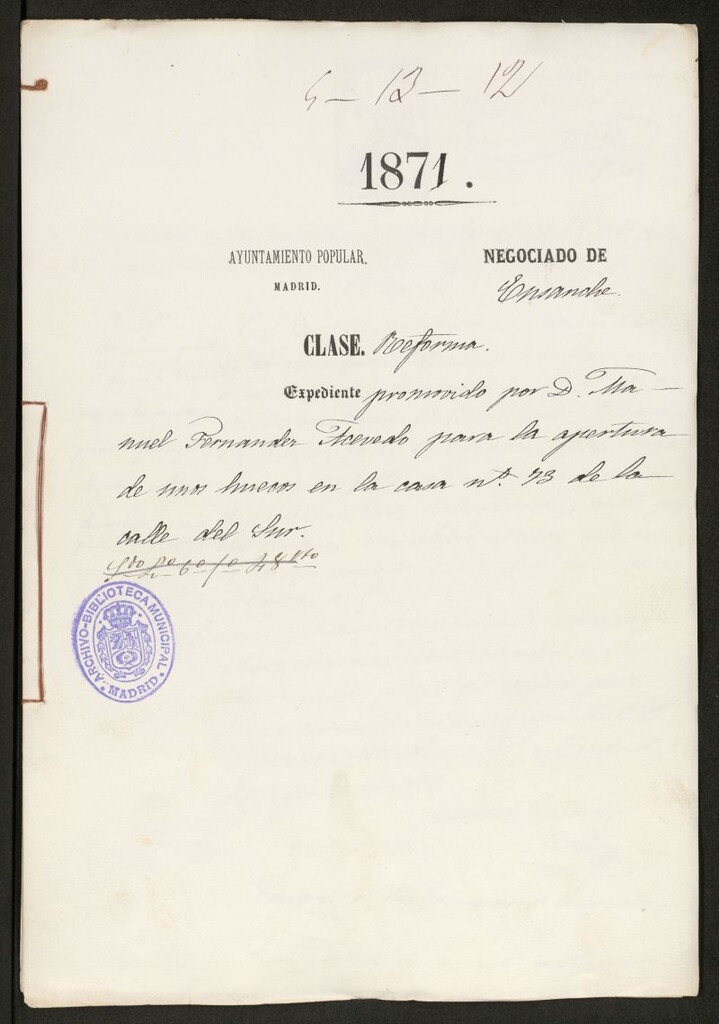 5 - 13 - 12
1871.
AYUNTAMIENTO POPULAR.
MADRID.
NEGOCIADO DE
Ensanche.
CLASE. Reforma.
Expediente promovido por D. Ma-
nuel Fernander Acevedo para la apertura
de unos huecos en la casa nº. 73 de la
calle del Sur.
ARCHIVO-BIBLIOTECA MUNICIPAL
• MADRID •